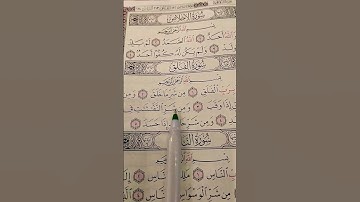 سُورَةُ الإِخْلَاصِ
بِسْمِ اللَّهِ الرَّحْمَٰنِ الرَّحِيمِ
اللَّهُ أَحَدٌ ١ اللَّهُ الصَّمَدُ ٢ لَمْ يَلِدْ
وَلَمْ يَكُن لَّهُ كُفُوًا أَحَدٌ ٤
سُورَةُ الفَلَقِ
بِسْمِ اللَّهِ الرَّحْمَٰنِ الرَّحِيمِ
بِرَبِّ الْفَلَقِ ١ مِن شَرِّ مَا خَلَقَ ٢
إِذَا وَقَبَ ٣ وَمِن شَرِّ النَّفَّٰثَٰتِ فِي
٤ وَمِن شَرِّ إِذَا حَسَدَ ٥
سُورَةُ النَّاسِ
بِسْمِ الرَّحِيمِ
بِرَبِّ النَّاسِ ١ مَلِكِ النَّاسِ ٢
مِن شَرِّ الْوَسْوَاسِ